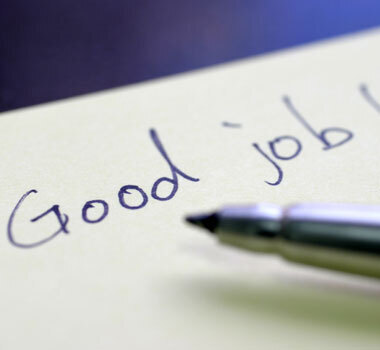 Good job!